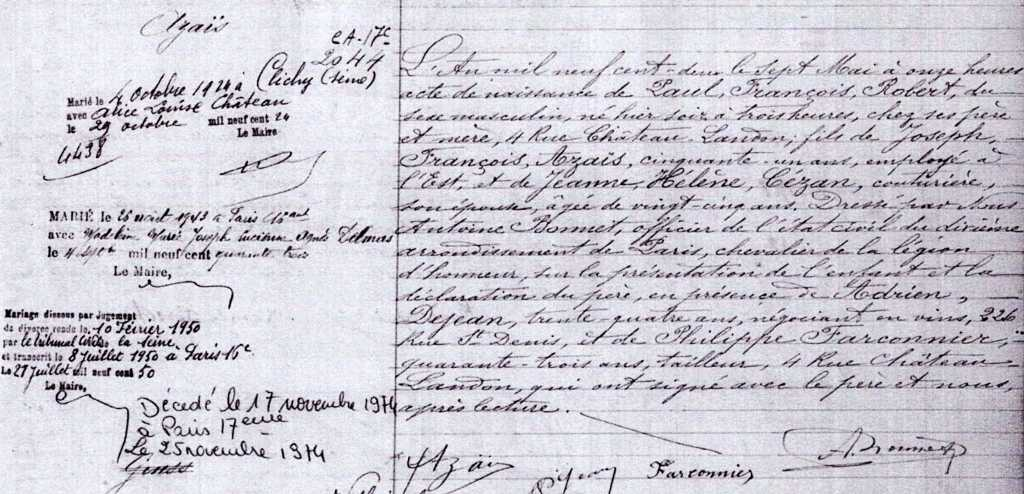 Azaïs
CA-17e
2044
Marié le 4 octobre 1924 à Clichy (Seine)
avec Alice Louise Château
le 29 octobre mil neuf cent 24
Le Maire
4438
MARIÉ le 26 août 1943 à Paris
avec Marie Joseph Lucienne Agnès Delmas
le 4 mil neuf cent quarante trois
Le Maire,
Mariage dissous par Jugement
de divorce rendu le 10 Février 1950
par le tribunal Civil de la Seine
et transcrit le 8 Juillet 1950 à Paris 16e
Le 27 Juillet mil neuf cent 50
Le Maire,
Décédé le 17 novembre 1974
à Paris 17ème
Le 25 novembre 1974
L'An mil neuf cent deux le sept Mai à onze heures
acte de naissance de Paul, François, Robert, du
sexe masculin, né hier soir à trois heures, chez ses père
et mère, 4 Rue Château-Landon; fils de Joseph,
François, Azaïs, cinquante-un ans, employé à
l'Est, et de Jeanne, Hélène, Cézan, couturière,
son épouse, âgée de vingt cinq ans. Dressé par Nous
Antoine Bonnet, officier de l'état civil du dixième
arrondissement de Paris, chevalier de la légion
d'honneur, sur la présentation de l'enfant et la
déclaration du père, en présence de Adrien,
Dejean, trente-quatre ans, négociant en vins, 226
Rue St Denis, et de Philippe Farconnier,
quarante-trois ans, tailleur, 4 Rue Château-
Landon, qui ont signé avec le père et nous,
après lecture.
Azaïs
Farconnier
A. Bonnet